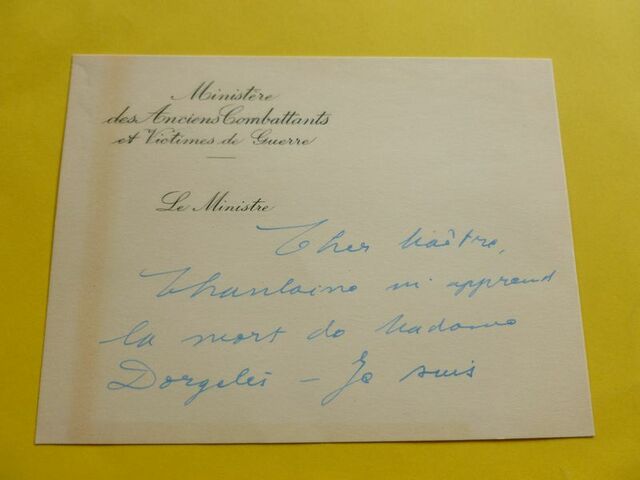 Ministère
des Anciens Combattants
et Victimes de Guerre
Le Ministre
Cher Maître,
m'apprend
la mort de Madame
Dorgelès – Je suis